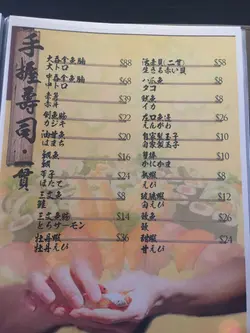 手握壽司・一貫
大吞拿魚腩 $88
大トロ
中吞拿魚腩 $68
中トロ
赤身 $39
赤身
劍魚腩 $22
カジキ
油甘魚 $20
はまち
鯛魚 $16
たい
帶子 $24
ほたて
三文魚 $14
三文魚腩 $24
とろサーモン
牡丹蝦 $36
牡丹えび
活赤貝(二貫) $58
生きる赤い貝
八爪魚 $8
タコ
魷魚 $8
イカ
左口魚邊
えんがわ
自家製玉子 $10
自家製玉子
蟹柳 $10
かにかま
熟蝦
えび
魚
魚
甜蝦 $24
甘えび